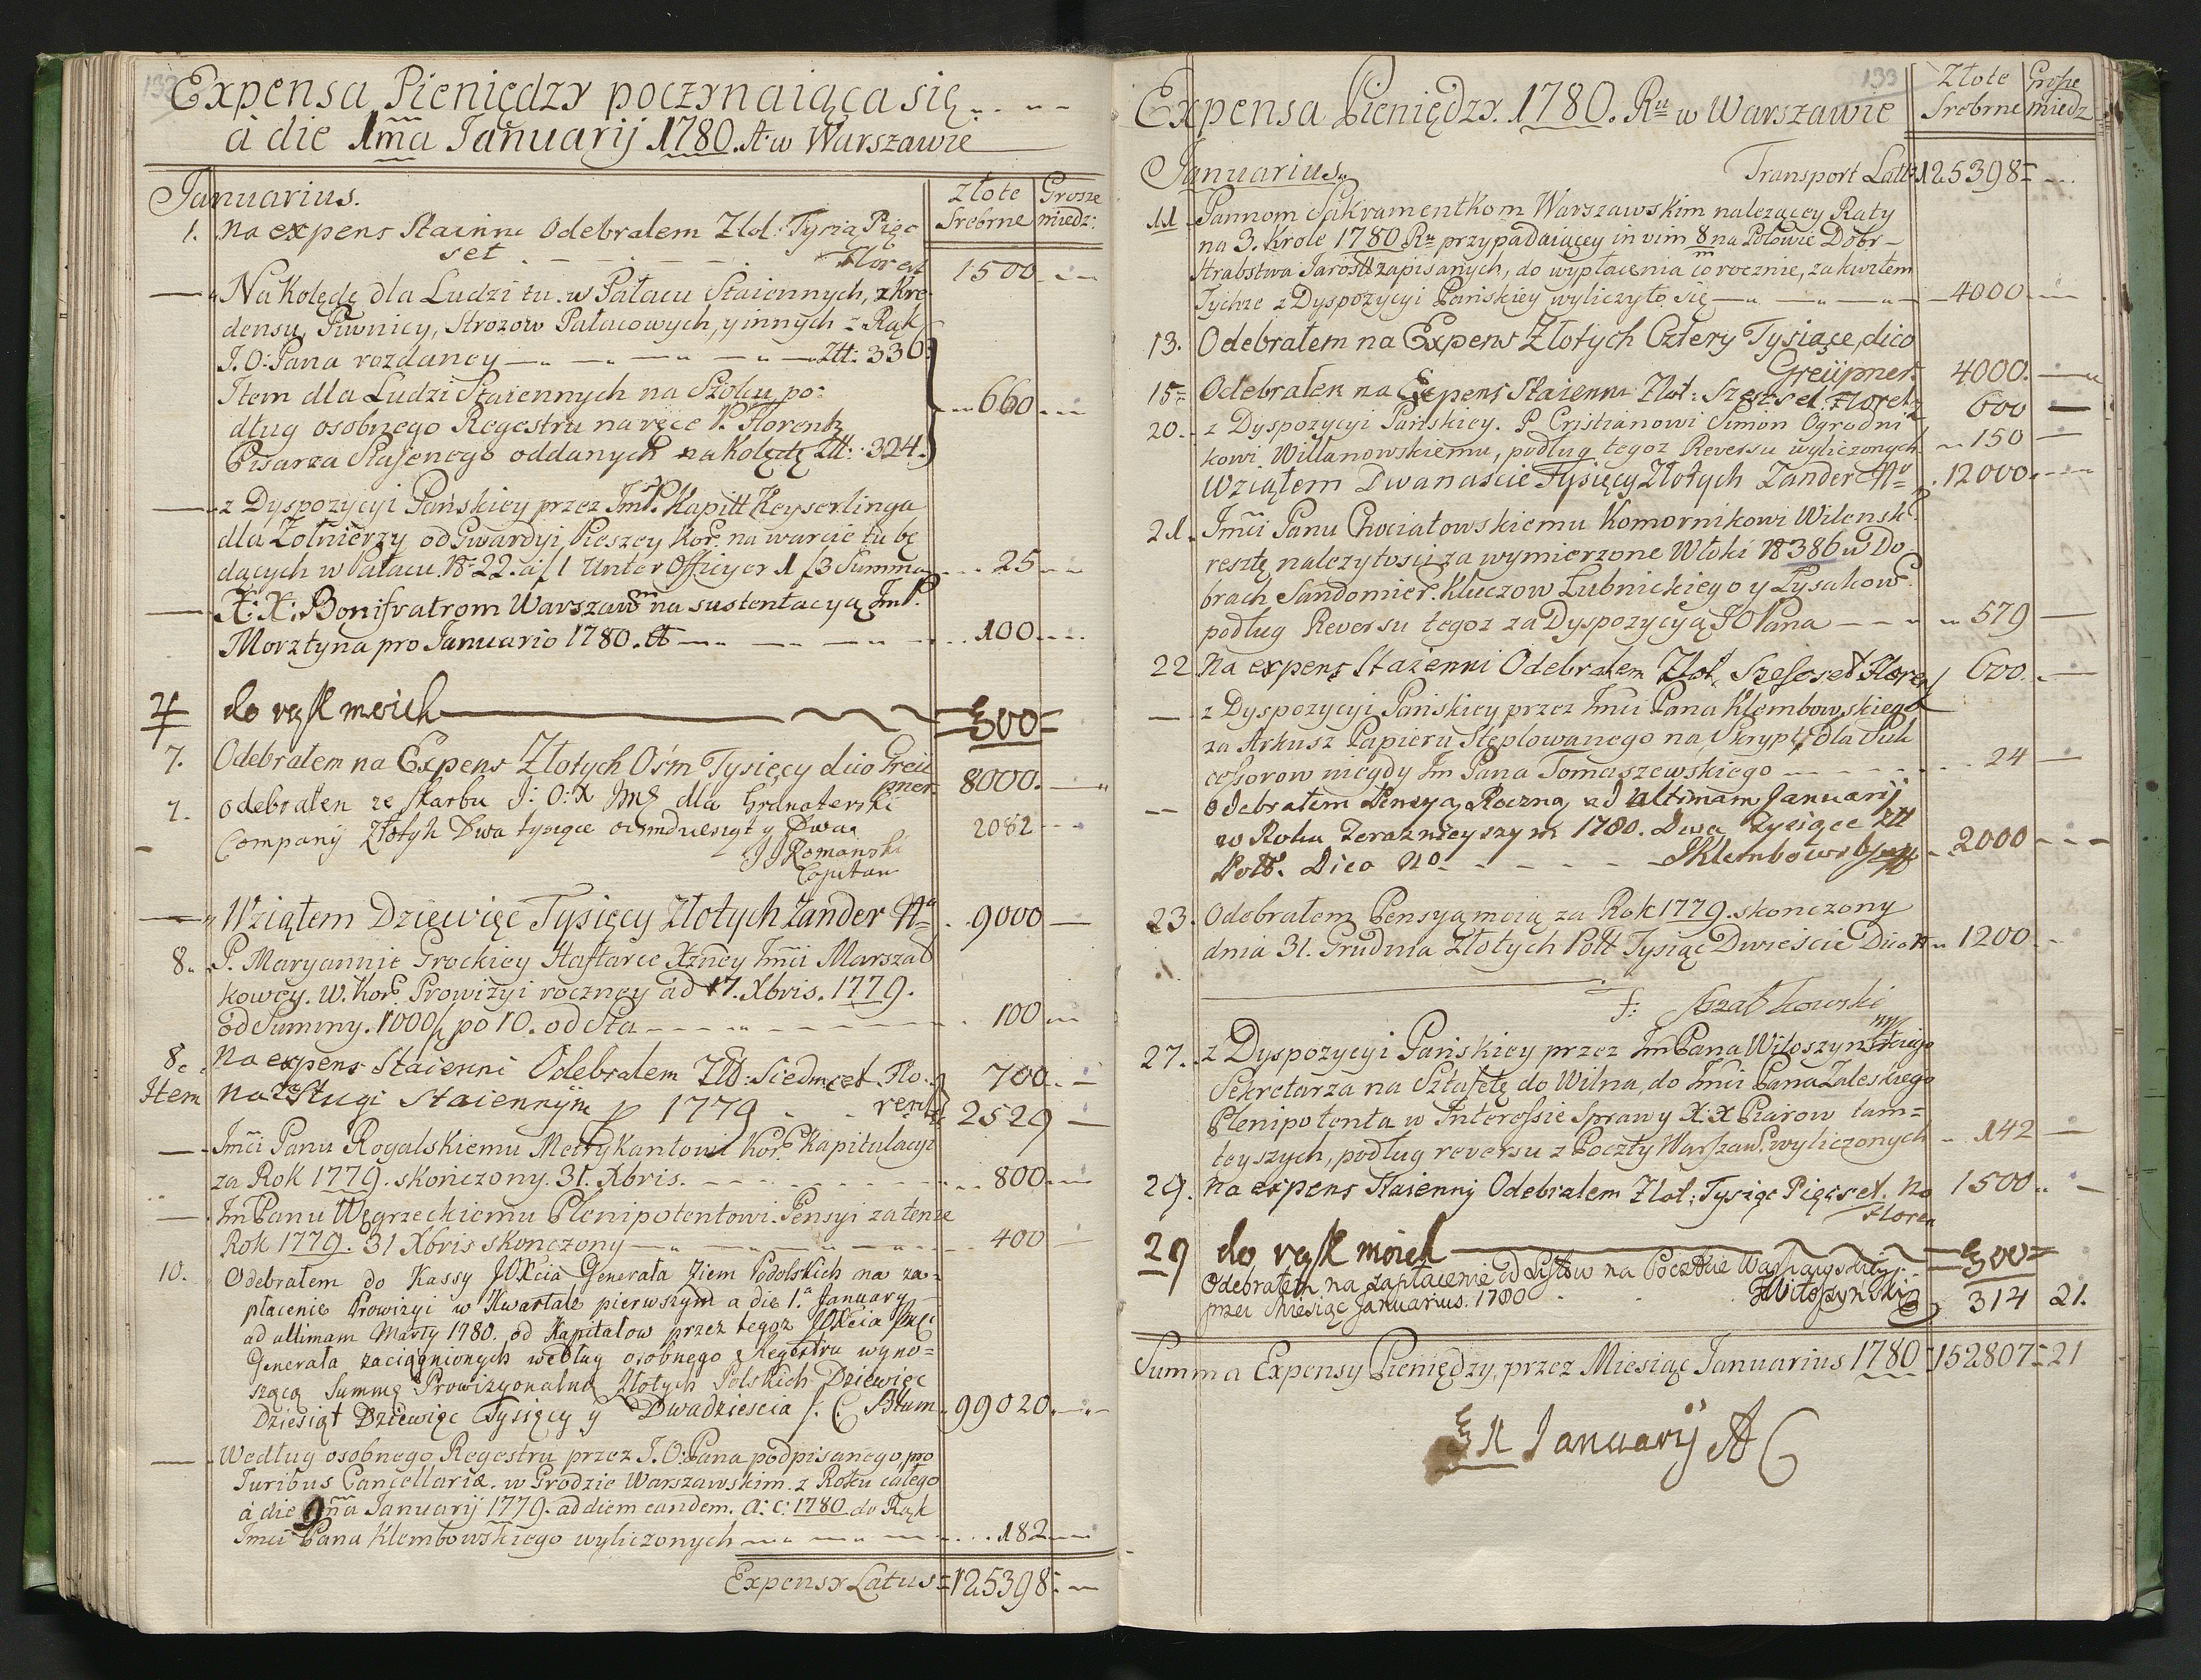 132
Expensa Pieniędzy poczynaiąca się
à die 1ma Januarij 1780. A. w Warszawie
Złote Srebrne
Grosze miedz:
Januarius.
1. Na expens Stainni Odebralem Zlol: Tysią Pięc
set Florent 1500
Na Kolędę dla Ludzi tu w Pałacu Staiennych, z Kre
densu, Piwnicy, Strozow Pałacowych, y innych z Rąk
J. O. Pana rozdaney Złł: 336
Item dla Ludzi Staiennych na Stołu po:
dług osobnego Regestru na ręce P. Florentz 660
Pisarza Stajenego oddanych na Kolędę Złł: 324.
z Dyspozycyi Pańskiey przez ImP. Kapitt Keyserlinga
dla Zołnierzy od Gwardyi Pieszey Kor. na warcie tu bę
dących w Pałacu N 22. a f1 Unter Officyer 1 f3 Summa 25
X: X: Bonifratrom Warszaw na sustentacyą ImP.
Morztyna pro Januario 1780. 100
4 do rąk moich 300
7. Odebrałem na Expens Złotych Ośm Tysięcy dico Greü
pner. 8000.
7. odebrałen ze skarbu J: O: X Jmę dla Granaterski
Company Złotyh Dwa tysiące osimdziesiąt y Dwa 2082
J J Romanski
Capitan
Wziąłem Dziewięc Tysięcy Złotych Zander 9000
8. P. Maryannie Grockiey Haftarce Xzney Jmci Marszał
kowey. W. Kor. Prowizyi roczney ad 17. Xbris. 1779.
od Summy. 1000 po 10. od Sta 100
8. Na expens Staienni Odebralem Zlo: Siedmset Flo. 700.
Item na zaslugi Staiennym p 1779 rentz 2529
Jmci Panu Rogalskiemu Metrykantowi Kor. Kapitulacyi
za Rok 1779. skończony. 31. Xbris. 800
Jm Panu Węgrzeckiemu Plenipotentowi Pensyi za tenze
Rok 1779. 31 Xbris skonczony 400
10. Odebrałem do Kassy JOXcia Generała Ziem Podolskich na za=
płacenie Prowizyi w Kwartale pierwszym a die 1.a January
ad ultimam Marty 1780. od Kapitałow przez tegoz JOXcia Jmci
Generała zaciągnionych według osobnego Regestru wyno=
szącą Summę Prowizyonalną Złotych Polskich Dziewięc
Dziesiąt Dziewięc Tysięcy y Dwadziescia J. C. Blum 99020
Według osobnego Regestru przez J. O: Pana podpisanego, pro
Juribus Cancellariæ. w Grodzie Warszawskim. z Roku całego
à die 9na Januarij 1779. ad diem eandem. a: c: 1780. do Rąk
Jmci Pana Klembowskiego wyliczonych 182
Expensy Latus = 125398
133
Expensa Pieniędzy. 1780. Ru w Warszawie
Złote Srebrne
Grosze miedz
Januarius.
Transport Latt. 125398
11. Pannom Sakramentkom Warszawskim nalezącey Raty
na 3. Krole 1780 Ru przypadaiącey in vim 8na Połowie Dobr
Hrabstwa Jarosł zapisanych, do wypłacenia corocznie, za kwitem
Tychze z Dyspozycyi Pańskiey wyliczyło się 4000
13. Odebrałem na Expens Złotych Cztery Tysiące, dico
Greüpner. 4000.
15. Odebrałem na Expens Staienni Zlot: Szesset. Florentz 600
20. z Dyspozycyi Pańskiey. P. Cristianowi Simon Ogrodni
kowi Willanowskiemu, podług tegoz Reversu wyliczonych 150
Wziąłem Dwanascie Tysięcy Złotych Zander 12000
21. Jmci Panu Chociatowskiemu Komornikowi Wilensk.
resztę nalezytosci za wymierzone Włoki N 386 w Do
brach Sandomier. Kluczow Lubnickiego y Łysakow.
podług Reversu tegoz za Dyspozycyą JO Pana 579
22 Na expens Staienni Odebralem Zlot. Szescset Floren 600.
z Dyspozycyi Pańskiey przez Jmci Pana Klembowskiego
za Arkusz Papieru Stęplowanego na Skrypt, dla Suk
cessorow niegdy Jm Pana Tomaszewskiego 24
odebrałem Pensyą Roczną ad Ultimam Januarij
w Roku Teraznieyszym 1780. Dwa Tysiące Złł
Polł. Dico No JKlembowski 2000
23. Odebrałem Pensyą moią za Rok 1779. skonczony
dnia 31. Grudnia Złotych Poll Tysiąc Dwieście Dico 1200
27. z Dyspozycyi Pańskiey przez Jm Pana Witoszynskiego
Sekretarza na Sztafetę do Wilna, do Jmci Pana Zaleskiego
Plenipotenta w Interessie Sprawy X: X Piarow tam=
teyszych, podług reversu z Poczty Warszaw. wyliczonych 142
29. Na expens Staienny Odebralem Zlot: Tysiąc Pięcset. No 1500
Floren
29 do rąk moich 300
Odebrałem na zapłacenie od Listow na Poczcie Warszawskiey
przez Miesiąc Januarius. 1780 FWitoszynski 314 21.
Summa Expensy Pieniędzy, przez Miesiąc Januarius 1780 152807 = 21
31 Januarij AC